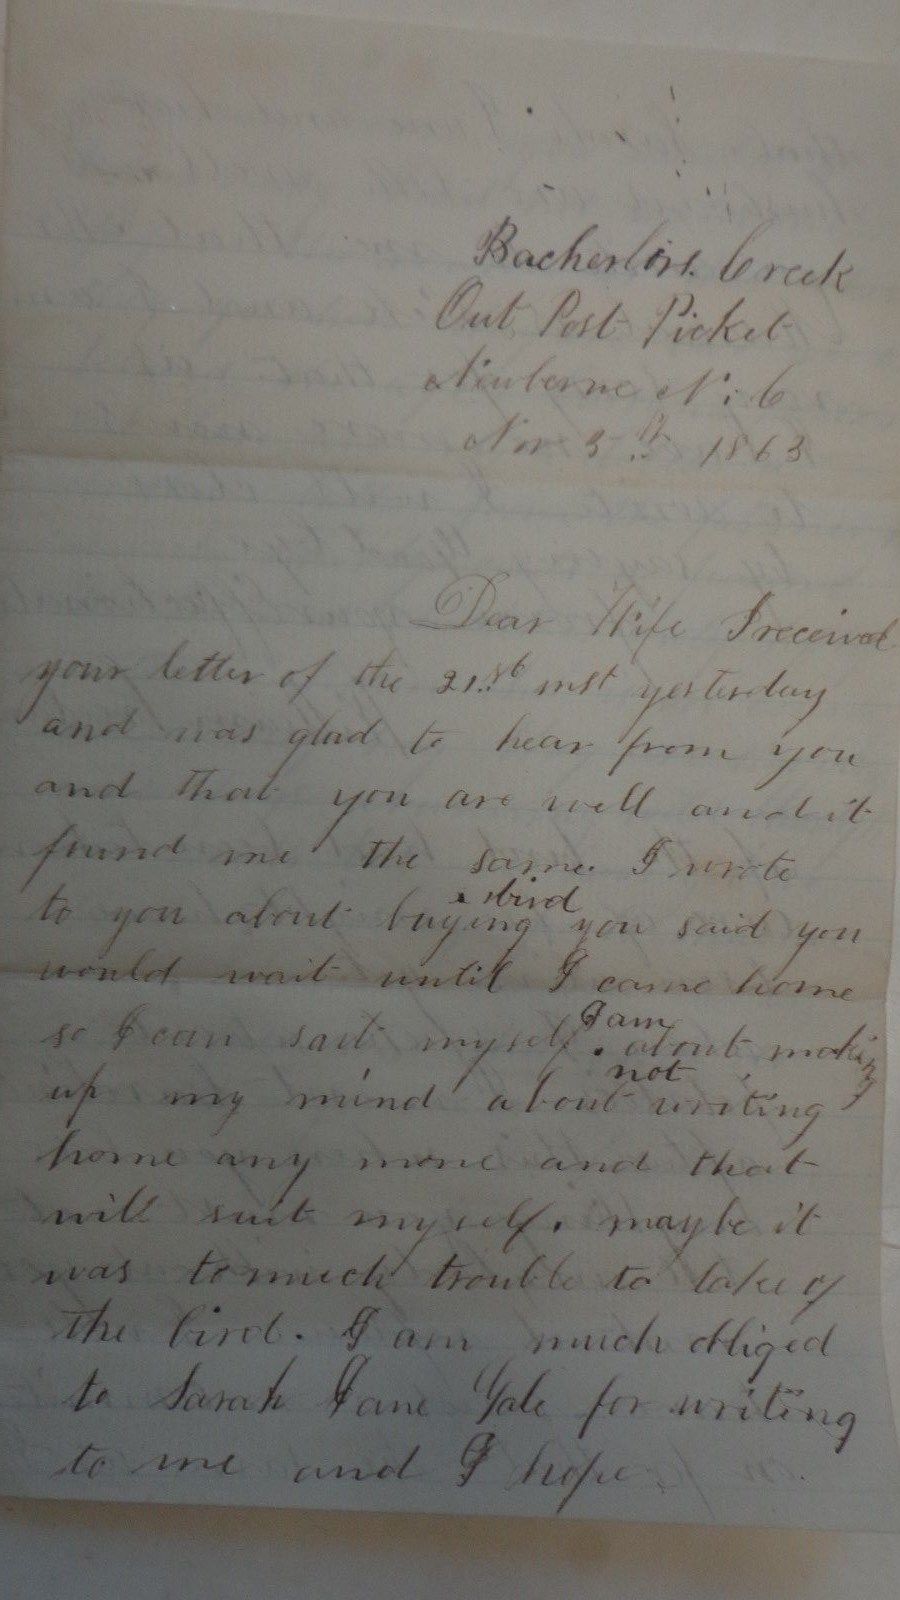 Bacherlors. Creek
Out Post Picket
Newberne N: C
Nov 3rd 1863
Dear Wife I received
your letter of the 21st inst yesterday
and was glad to hear from you
and that you are well and it
found me the same. I wrote
a bird
to you about buying you said you
would wait until I came home
I am
so I can suit myself. about making
not
up my mind about writing
home any more and that
will suit myself. maybe it
was to much trouble to take of
the bird. I am much obliged
to Sarah Jane Yale for writing
to me and I hope